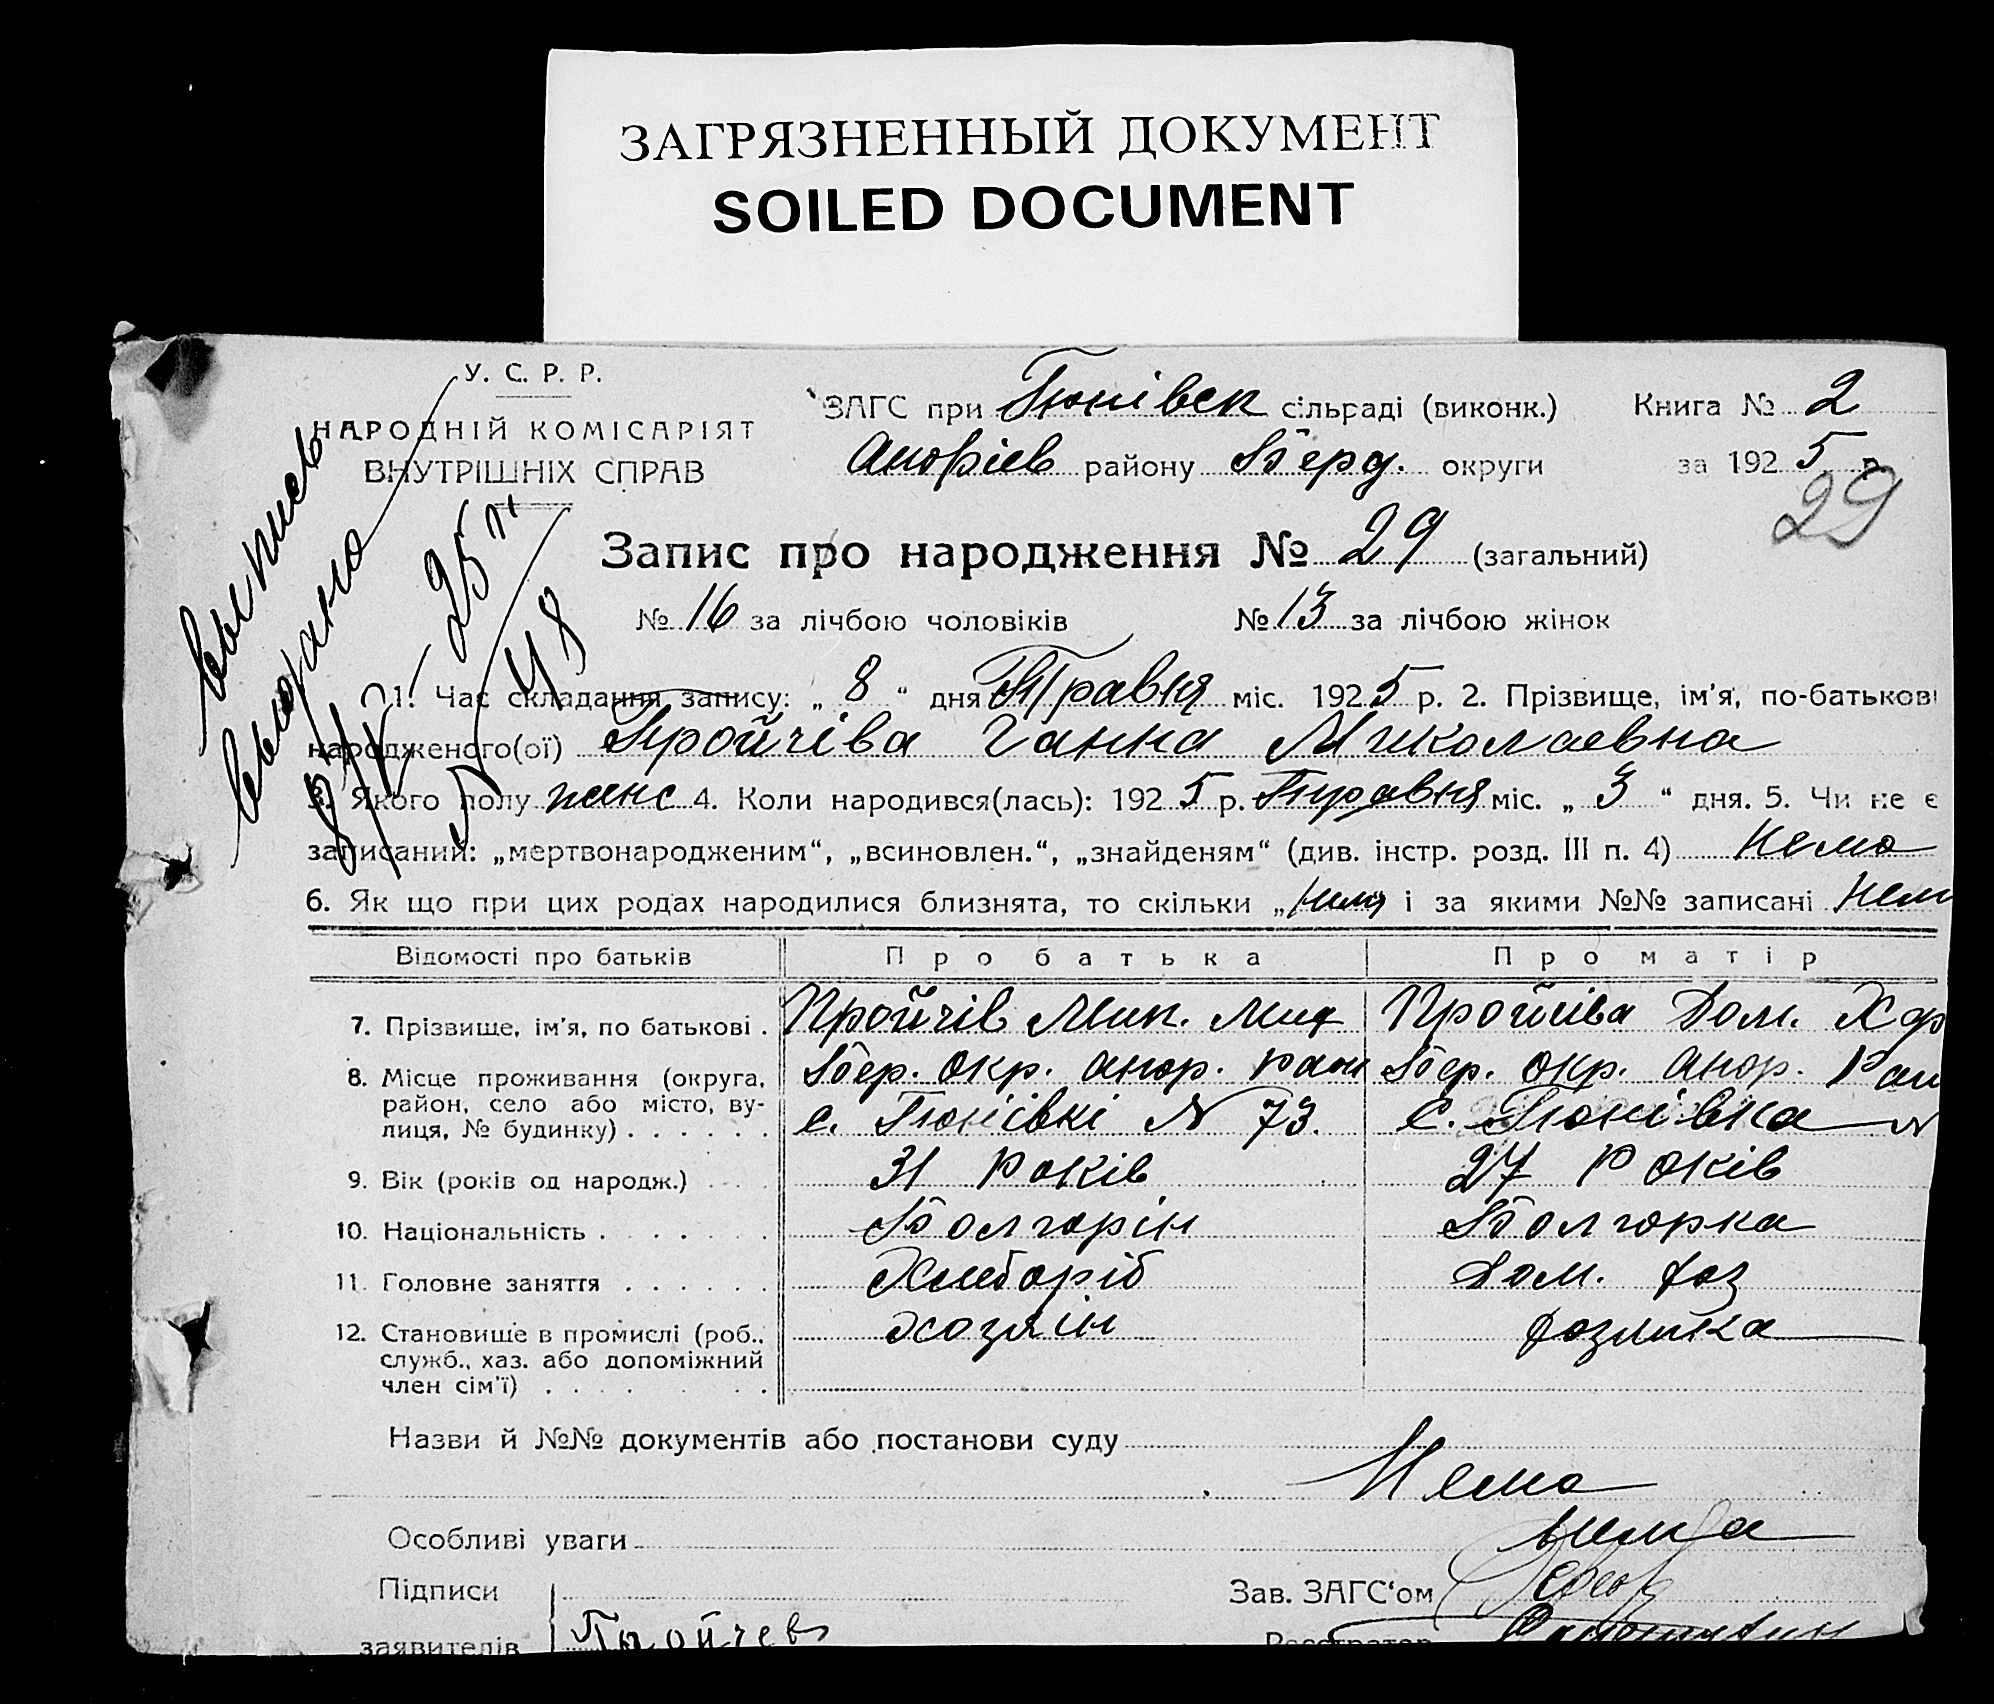 ЗАГРЯЗНЕННЫЙ ДОКУМЕНТ
SOILED DOCUMENT
У. С. Р. Р.
НАРОДНІЙ КОМІСАРІЯТ
ВНУТРІШНІХ СПРАВ
ЗАГС при Гюнівск сільраді (виконк.) Книга № 2
Андріев району Берд. округи за 1925 р.
29
Запис про народження № 29 (загальний)
№ 16 за лічбою чоловіків № 13 за лічбою жінок
1. Час складання запису: „ 8 “ дня Травня міс. 1925 р. 2. Прізвище, ім'я, по-батькові
народженого(ої) Пройчіва Ганна Миколаевна
3. Якого полу жінс 4. Коли народився(лась): 1925 р. Травня міс. „ 3 “ дня. 5. Чи не є
записаний: „мертвонародженим“, „всиновлен.“, „знайденям“ (див. інстр. розд. III п. 4) Нема
6. Як що при цих родах народилися близнята, то скільки „ і за якими №№ записані Нем
Відомості про батьків Про батька Про матір
7. Прізвище, ім'я, по батькові . Пройчів Мик. Мих Пройчіва Дом.
8. Місце проживання (округа, Бер. Окр. Андр. Бер. Окр. Андр.
район, село або місто, ву-
лиця, № будинку) . . . . . . с. Гюнівкі № 73. с. Гюнівка №
9. Вік (років од народж.) 31 Років 27 Років
10. Національність . . . . . . . Болгорін Болгорка
11. Головне заняття . . . . . . Хлеборіб Дом. хоз
12. Становище в промислі (роб., хозяін хозяйка
служб., хаз. або допоміжний
член сім'ї)
Назви й №№ документів або постанови суду
Нема
Особливі уваги нема
Підписи Зав. ЗАГС'ом
заявителів Пройчев Реєстратор
выпись
выдана
25 г.
48